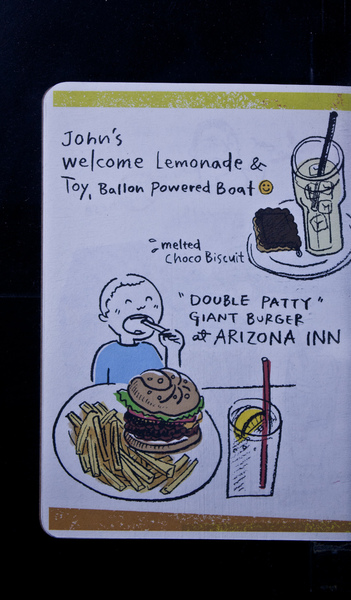 John's
welcome Lemonade &
Toy, Ballon Powered Boat
melted
Choco Biscuit
"DOUBLE PATTY"
GIANT BURGER
at ARIZONA INN